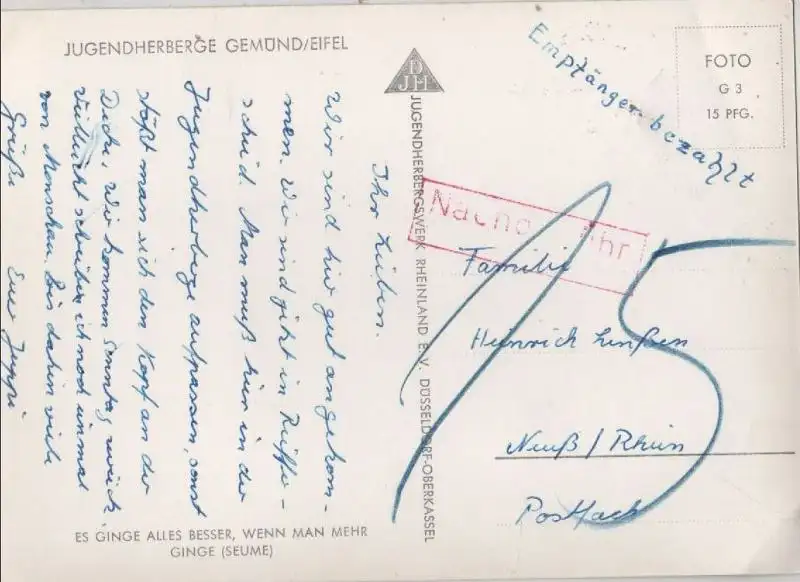 JUGENDHERBERGE GEMÜND/EIFEL
Ihr Lieben.
Wir sind hier gut angekom-
men. Wir sind jetzt in Reiffe-
scheid. Man muß hier in der
Jugendherberge aufpassen, sonst
stößt man sich den Kopf an der
Decke. Wir kommen Sonntag zurück.
Vielleicht schreibe ich noch einmal
von Monschau. Bis dahin viele
Grüße Euer Juppi
ES GINGE ALLES BESSER, WENN MAN MEHR
GINGE (SEUME)
DJH
JUGENDHERBERGSWERK RHEINLAND E. V. DÜSSELDORF-OBERKASSEL
Empfänger bezahlt
FOTO
G 3
15 PFG.
Nachgebühr
15
Familie
Heinrich Linßen
Neuß/Rhein
Postfach